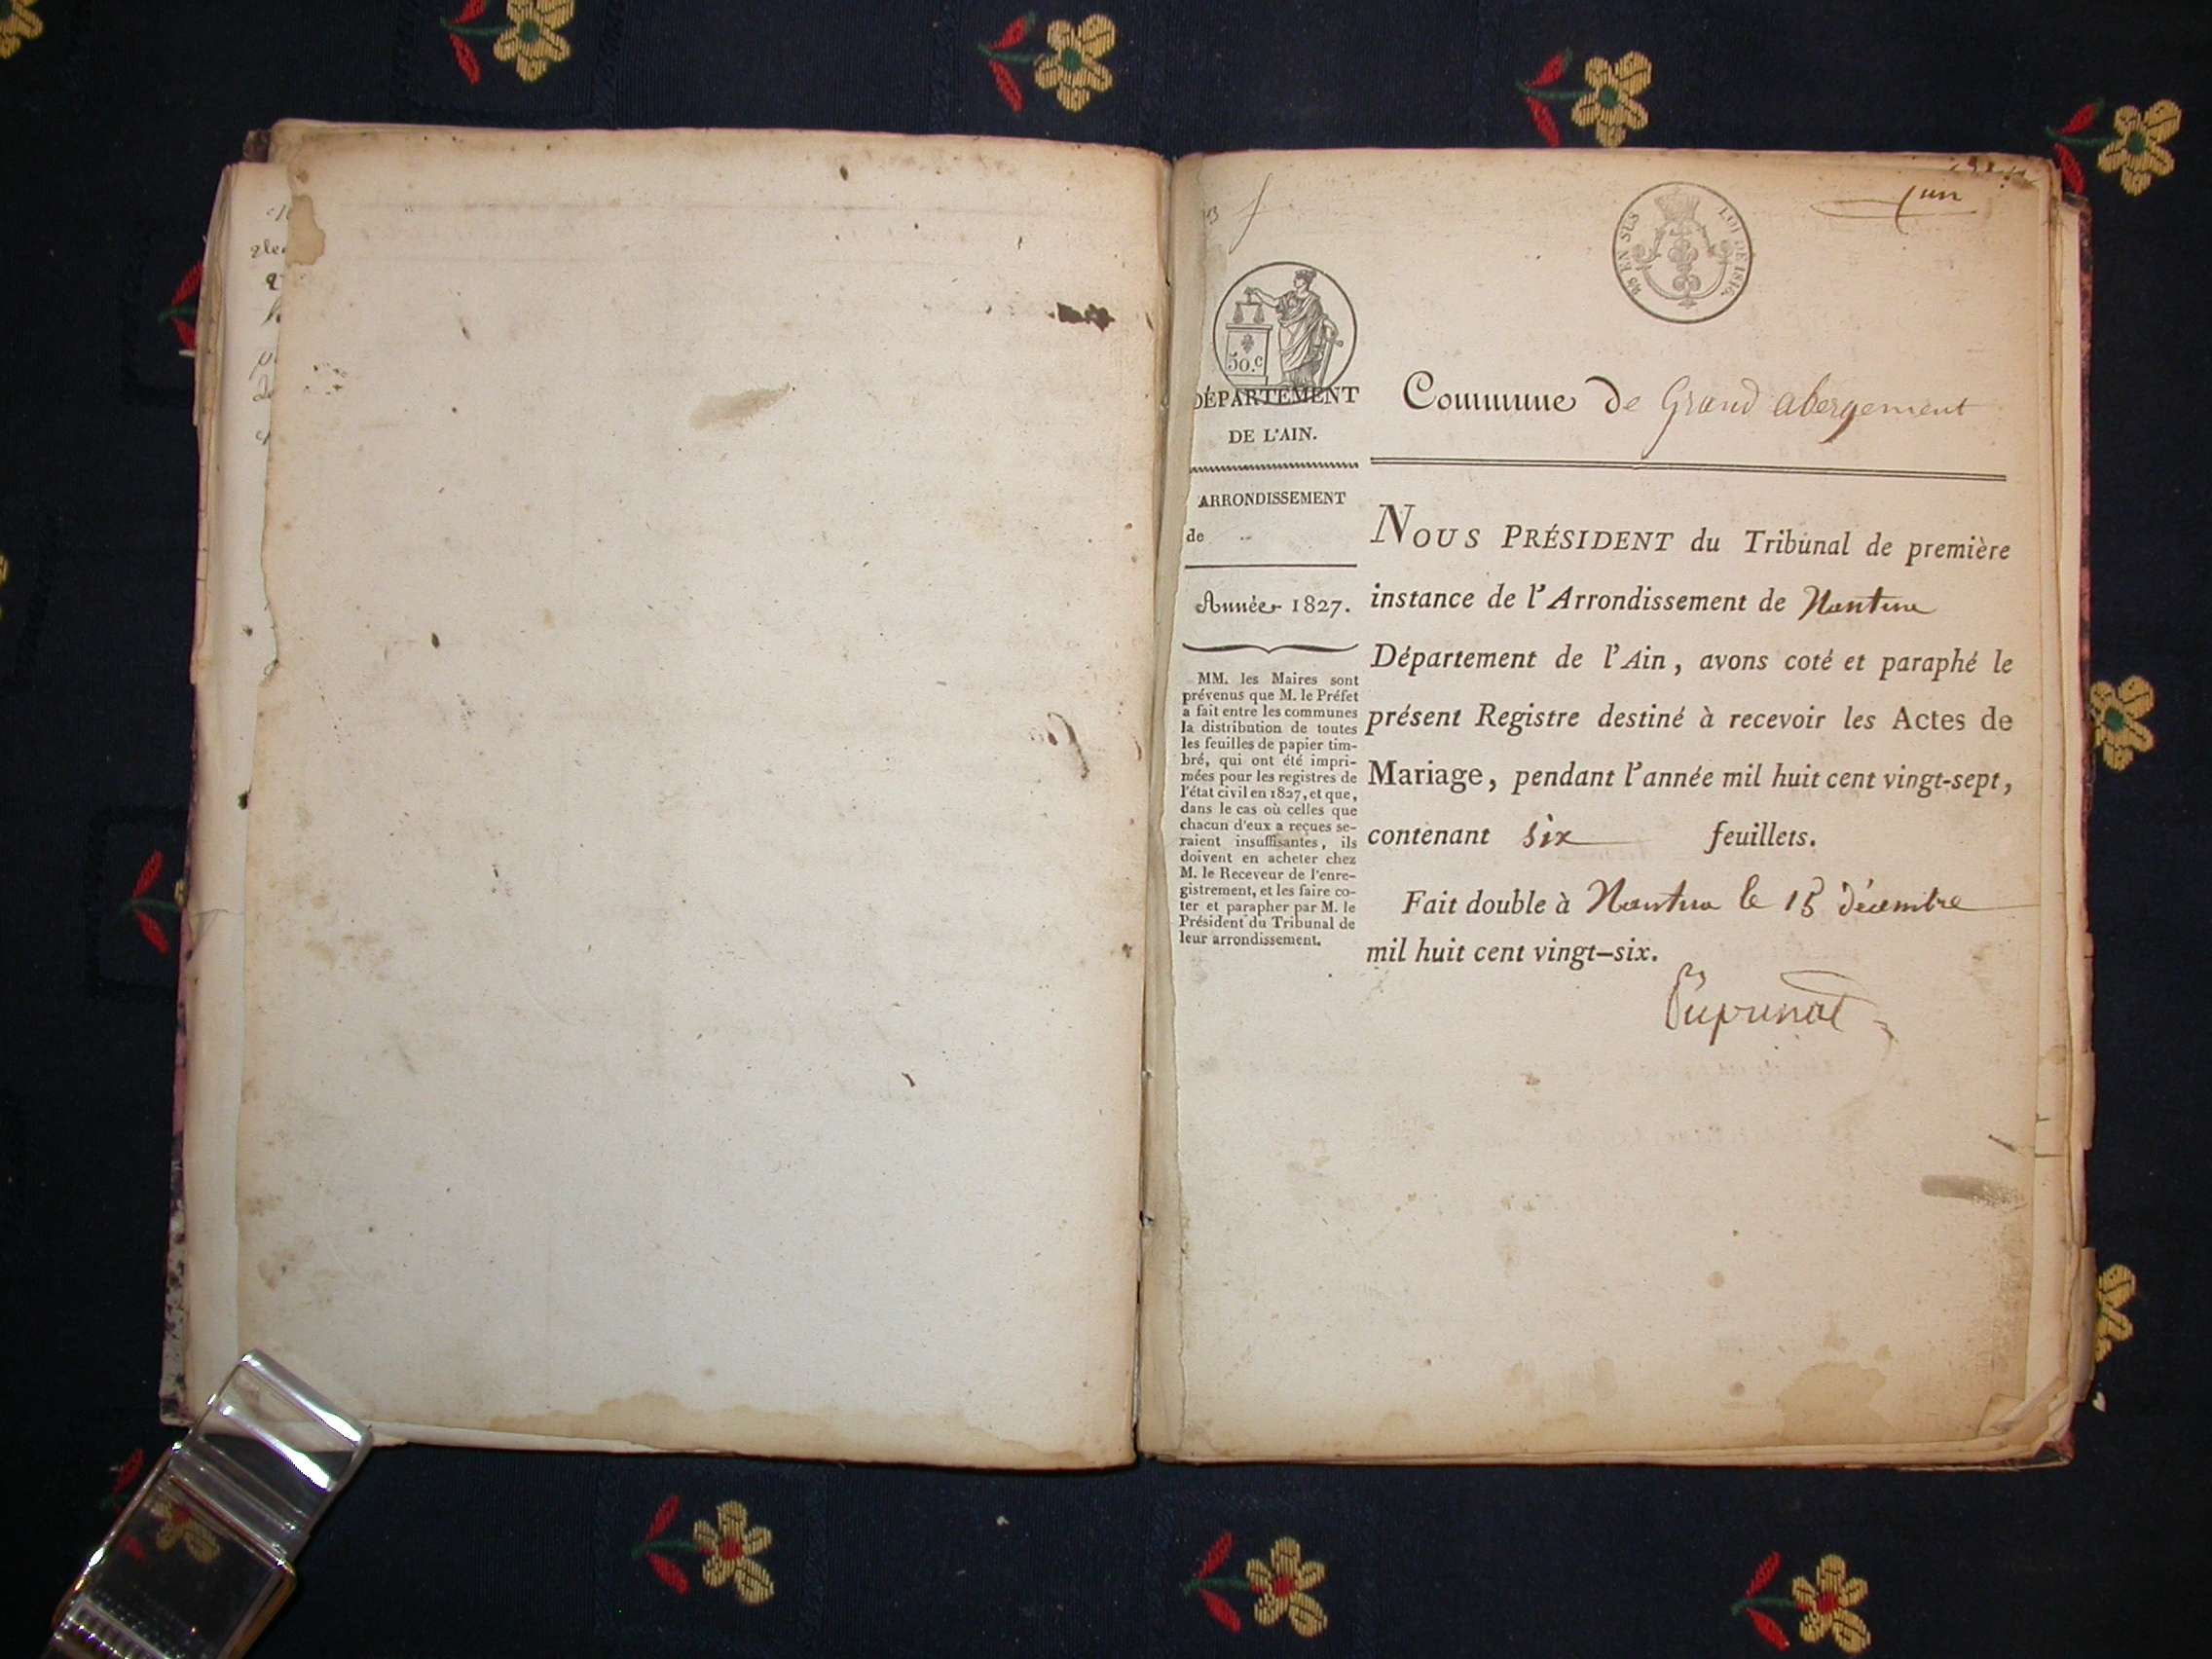 un
EN SUS
LOI DE 1816.
50.c
DÉPARTEMENT
DE L'AIN.
ARRONDISSEMENT
de
Année 1827.
MM. les Maires sont
prévenus que M. le Préfet
a fait entre les communes
la distribution de toutes
les feuilles de papier tim-
bré, qui ont été impri-
mées pour les registres de
l'état civil en 1827, et que,
dans le cas où celles que
chacun d'eux a reçues se-
raient insuffisantes, ils
doivent en acheter chez
M. le Receveur de l'enre-
gistrement, et les faire co-
ter et parapher par M. le
Président du Tribunal de
leur arrondissement.
Commune de Grand abergement
NOUS PRÉSIDENT du Tribunal de première
instance de l'Arrondissement de Nantua
Département de l'Ain, avons coté et paraphé le
présent Registre destiné à recevoir les Actes de
Mariage, pendant l'année mil huit cent vingt-sept,
contenant six feuillets.
Fait double à Nantua le 15 décembre
mil huit cent vingt-six.